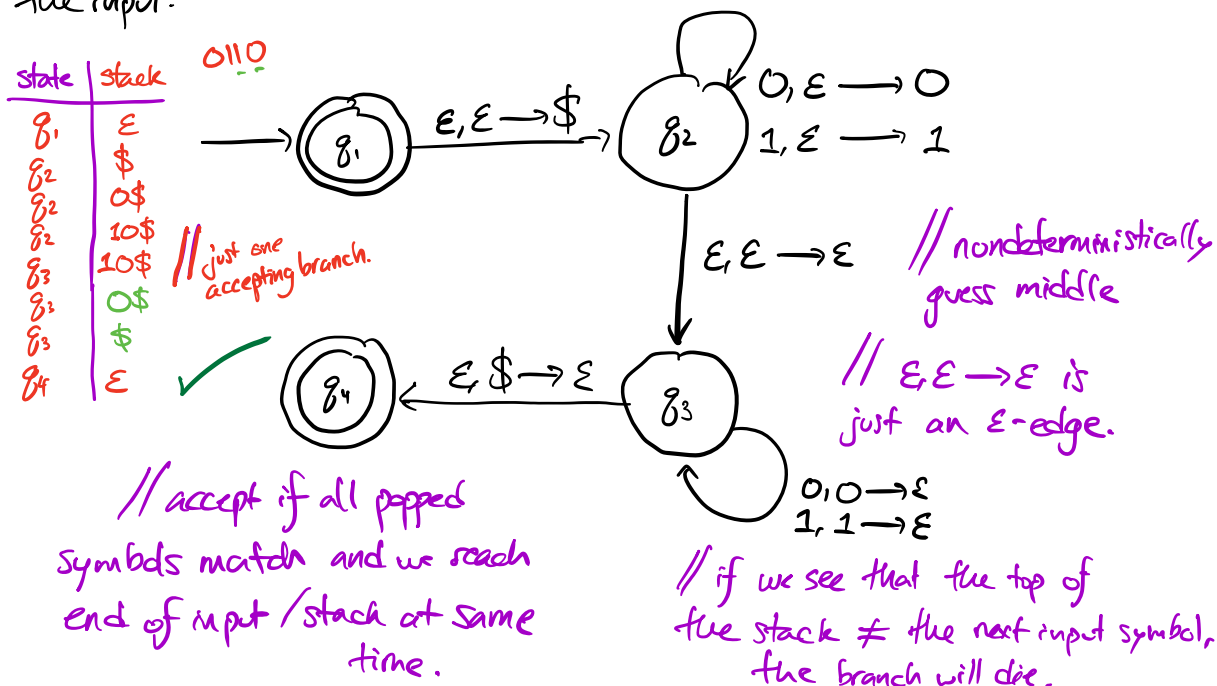 the input.
0110
state stack
q₁ ε
q₂ $
q₂ 0$
q₂ 10$
q₃ 10$
q₃ 0$
q₃ $
q₄ ε
// just one
accepting branch.
q₁
ε, ε → $
q₂
0, ε → 0
1, ε → 1
ε, ε → ε
// nondeterministically
guess middle
q₄
ε, $ → ε
q₃
// ε, ε → ε is
just an ε-edge.
0, 0 → ε
1, 1 → ε
// accept if all popped
symbols match and we reach
end of input / stack at same
time.
// if we see that the top of
the stack ≠ the next input symbol,
the branch will die.